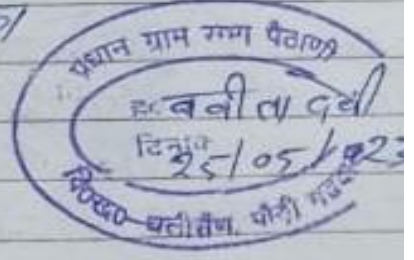 प्रधान ग्राम सभा पैठाणी
ह० बबीता देवी
दिनांक 25/05/2023
वि०ख० थलीसैण, पौड़ी गढ़वाल